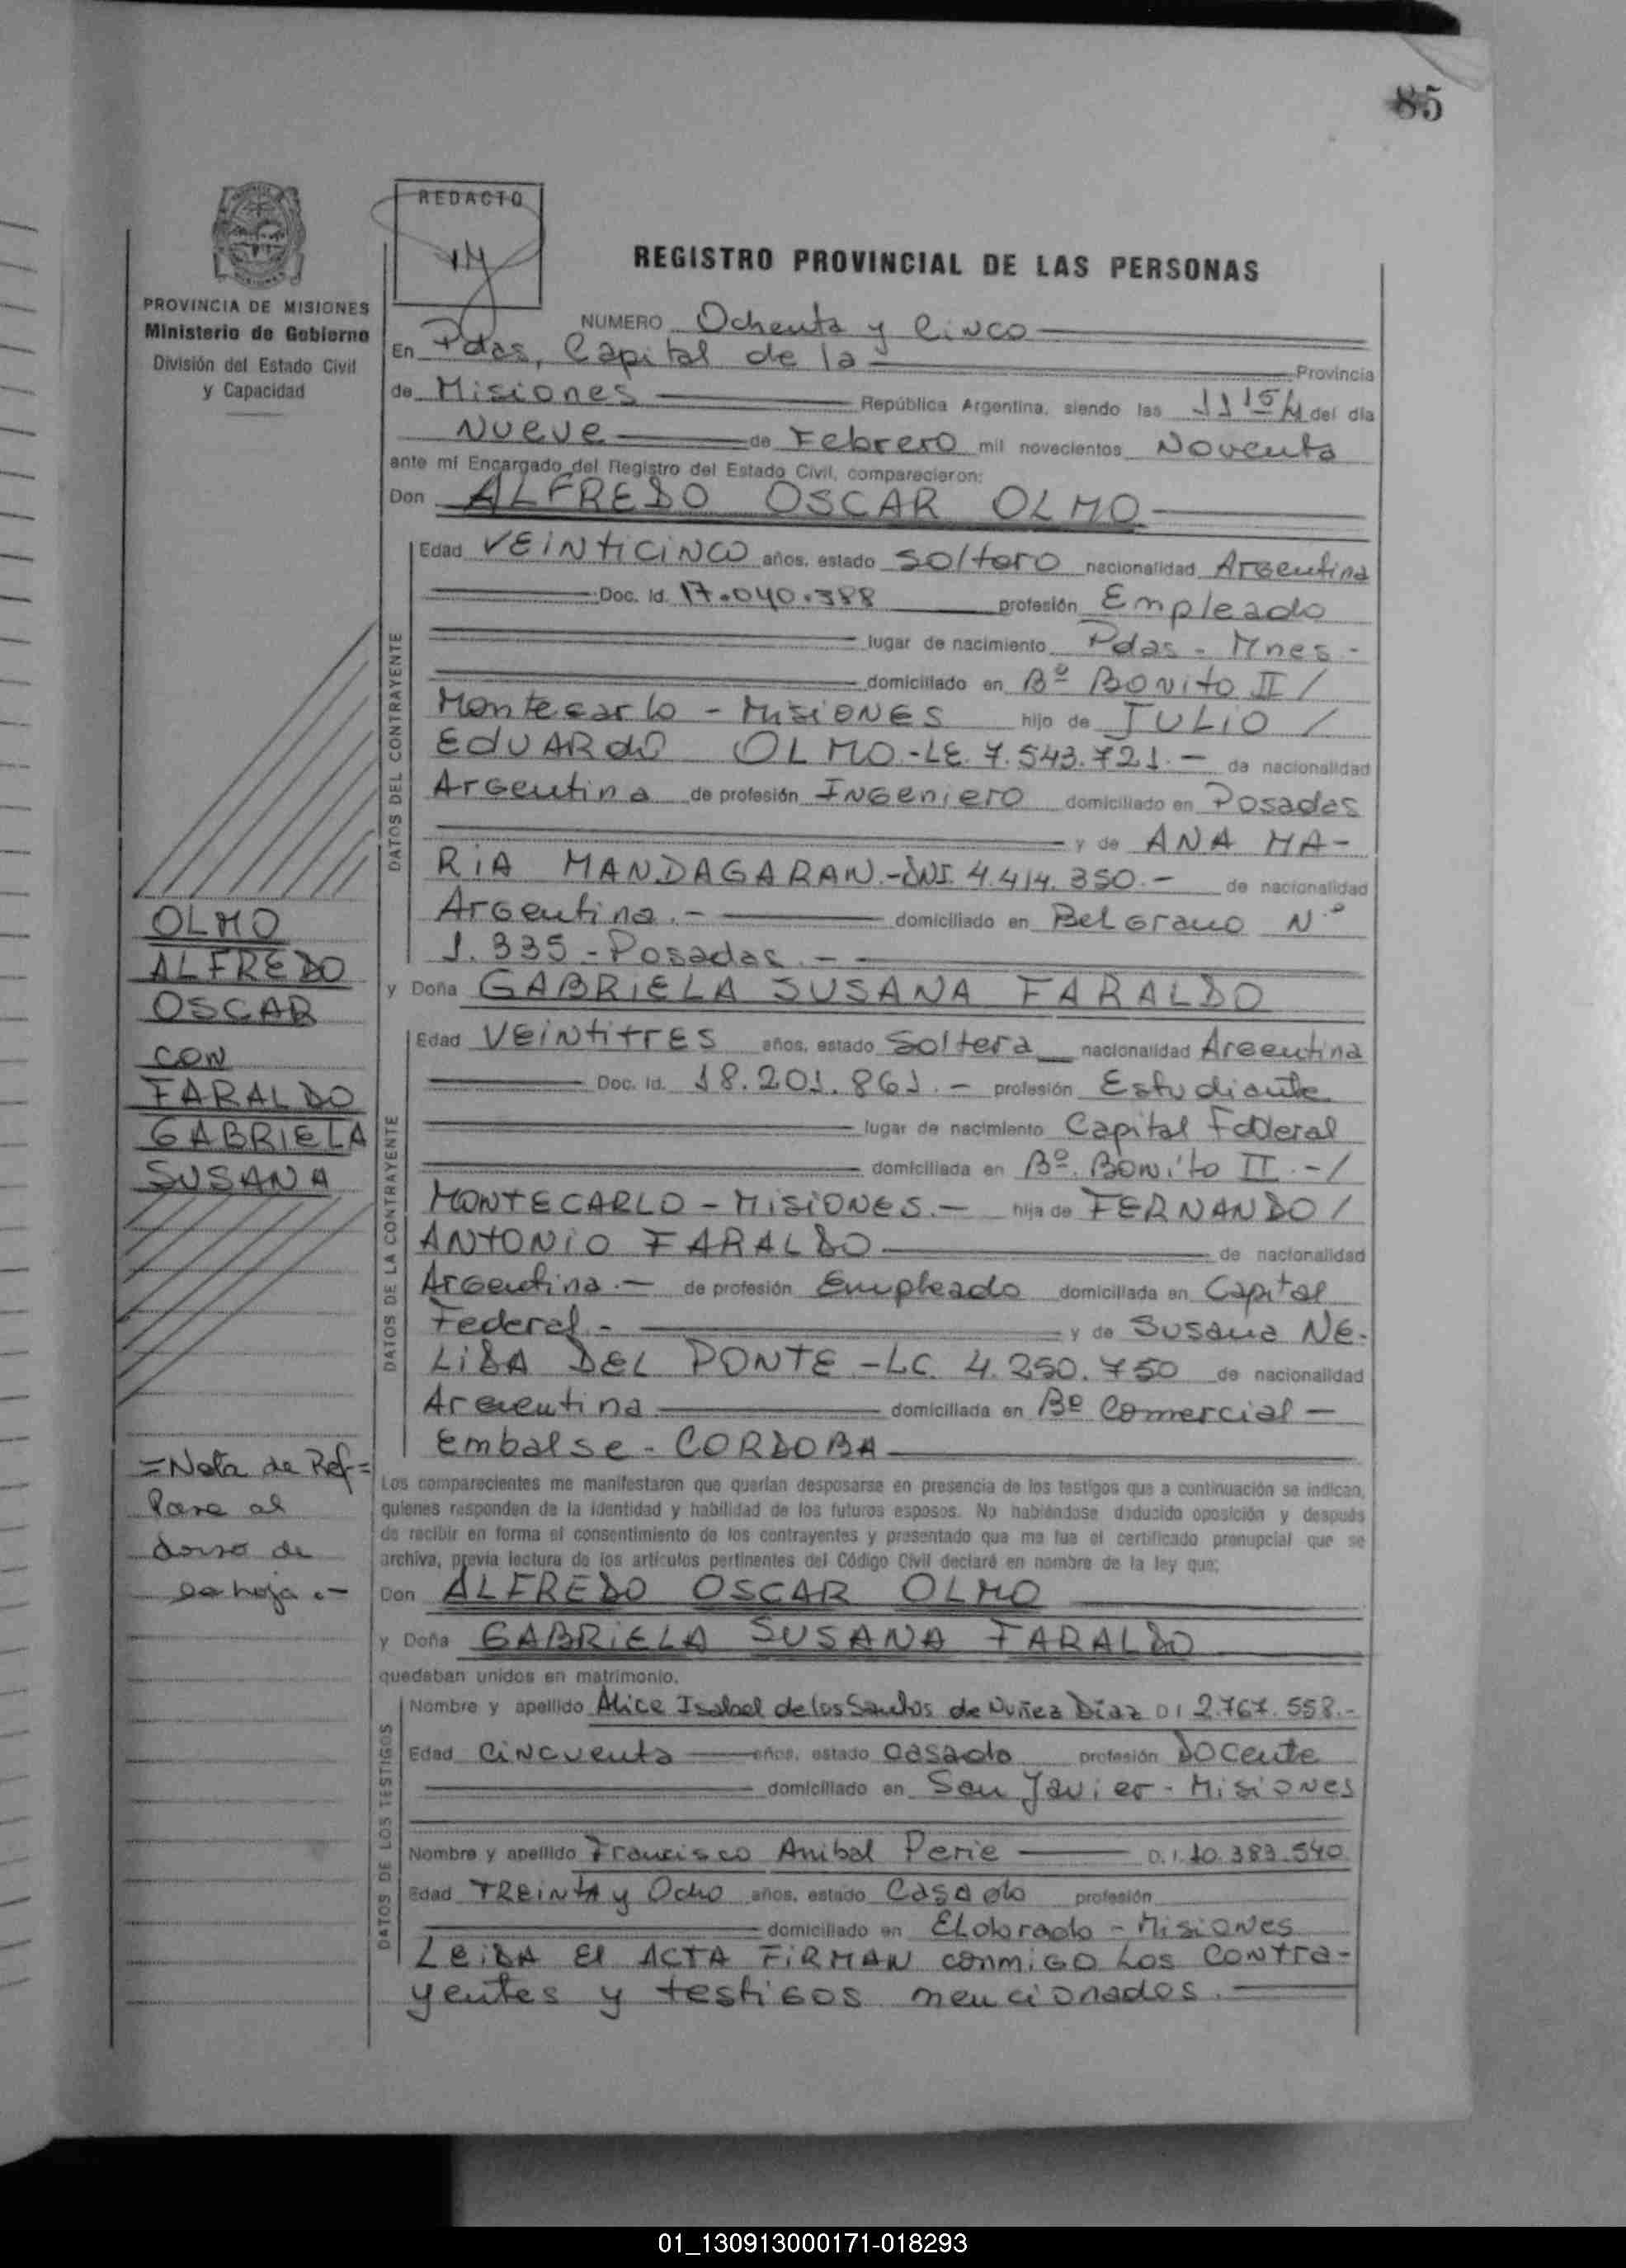 85
REDACTO
REGISTRO PROVINCIAL DE LAS PERSONAS
PROVINCIA DE MISIONES
Ministerio de Gobierno
División del Estado Civil
y Capacidad
NUMERO Ochenta y Cinco
En Pdas, Capital de la Provincia
de Misiones República Argentina, siendo las 11 15 H del día
Nueve de Febrero mil novecientos Noventa
ante mí Encargado del Registro del Estado Civil, comparecieron:
Don ALFREDO OSCAR OLMO
DATOS DEL CONTRAYENTE
Edad VEiNtiCiNCO años, estado Soltero nacionalidad Argentina
Doc. Id. 17.040.388 profesión Empleado
lugar de nacimiento Pdas - Mnes -
domiciliado en Bº Bonito II /
Montecarlo - Misiones hijo de JULIO /
EdUARdo OLMO.-LE. 7.543.721.- de nacionalidad
Argentina de profesión Ingeniero domiciliado en Posadas
y de ANA MA-
RiA MANDAGARAN.-DNI. 4.414.350.- de nacionalidad
Argentina.- domiciliado en Belgrano Nº
1.335 - Posadas.-
y Doña GABRIELA SUSANA FARALDO
DATOS DE LA CONTRAYENTE
Edad VEiNtitrES años, estado Soltera nacionalidad Argentina
Doc. Id. 18.201.861.- profesión Estudiante
lugar de nacimiento Capital Federal
domiciliada en Bº. Bonito II.-/
MONTECARLO - MiSiONES.- hija de FERNANDO /
ANTONiO FARALDO de nacionalidad
Argentina.- de profesión Empleado domiciliada en Capital
Federal.- y de Susana NE-
LiDA DEL PONTE -LC. 4.250.750 de nacionalidad
Argentina domiciliada en Bº Comercial -
Embalse - CORDOBA
Los comparecientes me manifestaron que querían desposarse en presencia de los testigos que a continuación se indican,
quienes responden de la identidad y habilidad de los futuros esposos. No habiéndose deducido oposición y después
de recibir en forma el consentimiento de los contrayentes y presentado que me fue el certificado prenupcial que se
archiva, previa lectura de los artículos pertinentes del Código Civil declaré en nombre de la ley que:
Don ALFREDO OSCAR OLMO
y Doña GABRiELA SUSANA FARALDO
quedaban unidos en matrimonio.
DATOS DE LOS TESTIGOS
Nombre y apellido Alice Isabel de los Santos de Nuñez Diaz D I 2.767.558.-
Edad Cincuenta años, estado Casado profesión Docente
domiciliado en San Javier - Misiones
Nombre y apellido Francisco Anibal Perie D. I. 10.383.540
Edad TREiNtA y Ocho años, estado Casado profesión
domiciliado en Eldorado - Misiones
LEiDA El ACTA FiRMAN conmigo Los Contra-
yentes y testigos mencionados.
OLMO
ALFREDO
OSCAR
CON
FARALDO
GABRIELA
SUSANA
=Nota de Ref=
Pase al
dorso de
la hoja.-
01_130913000171-018293